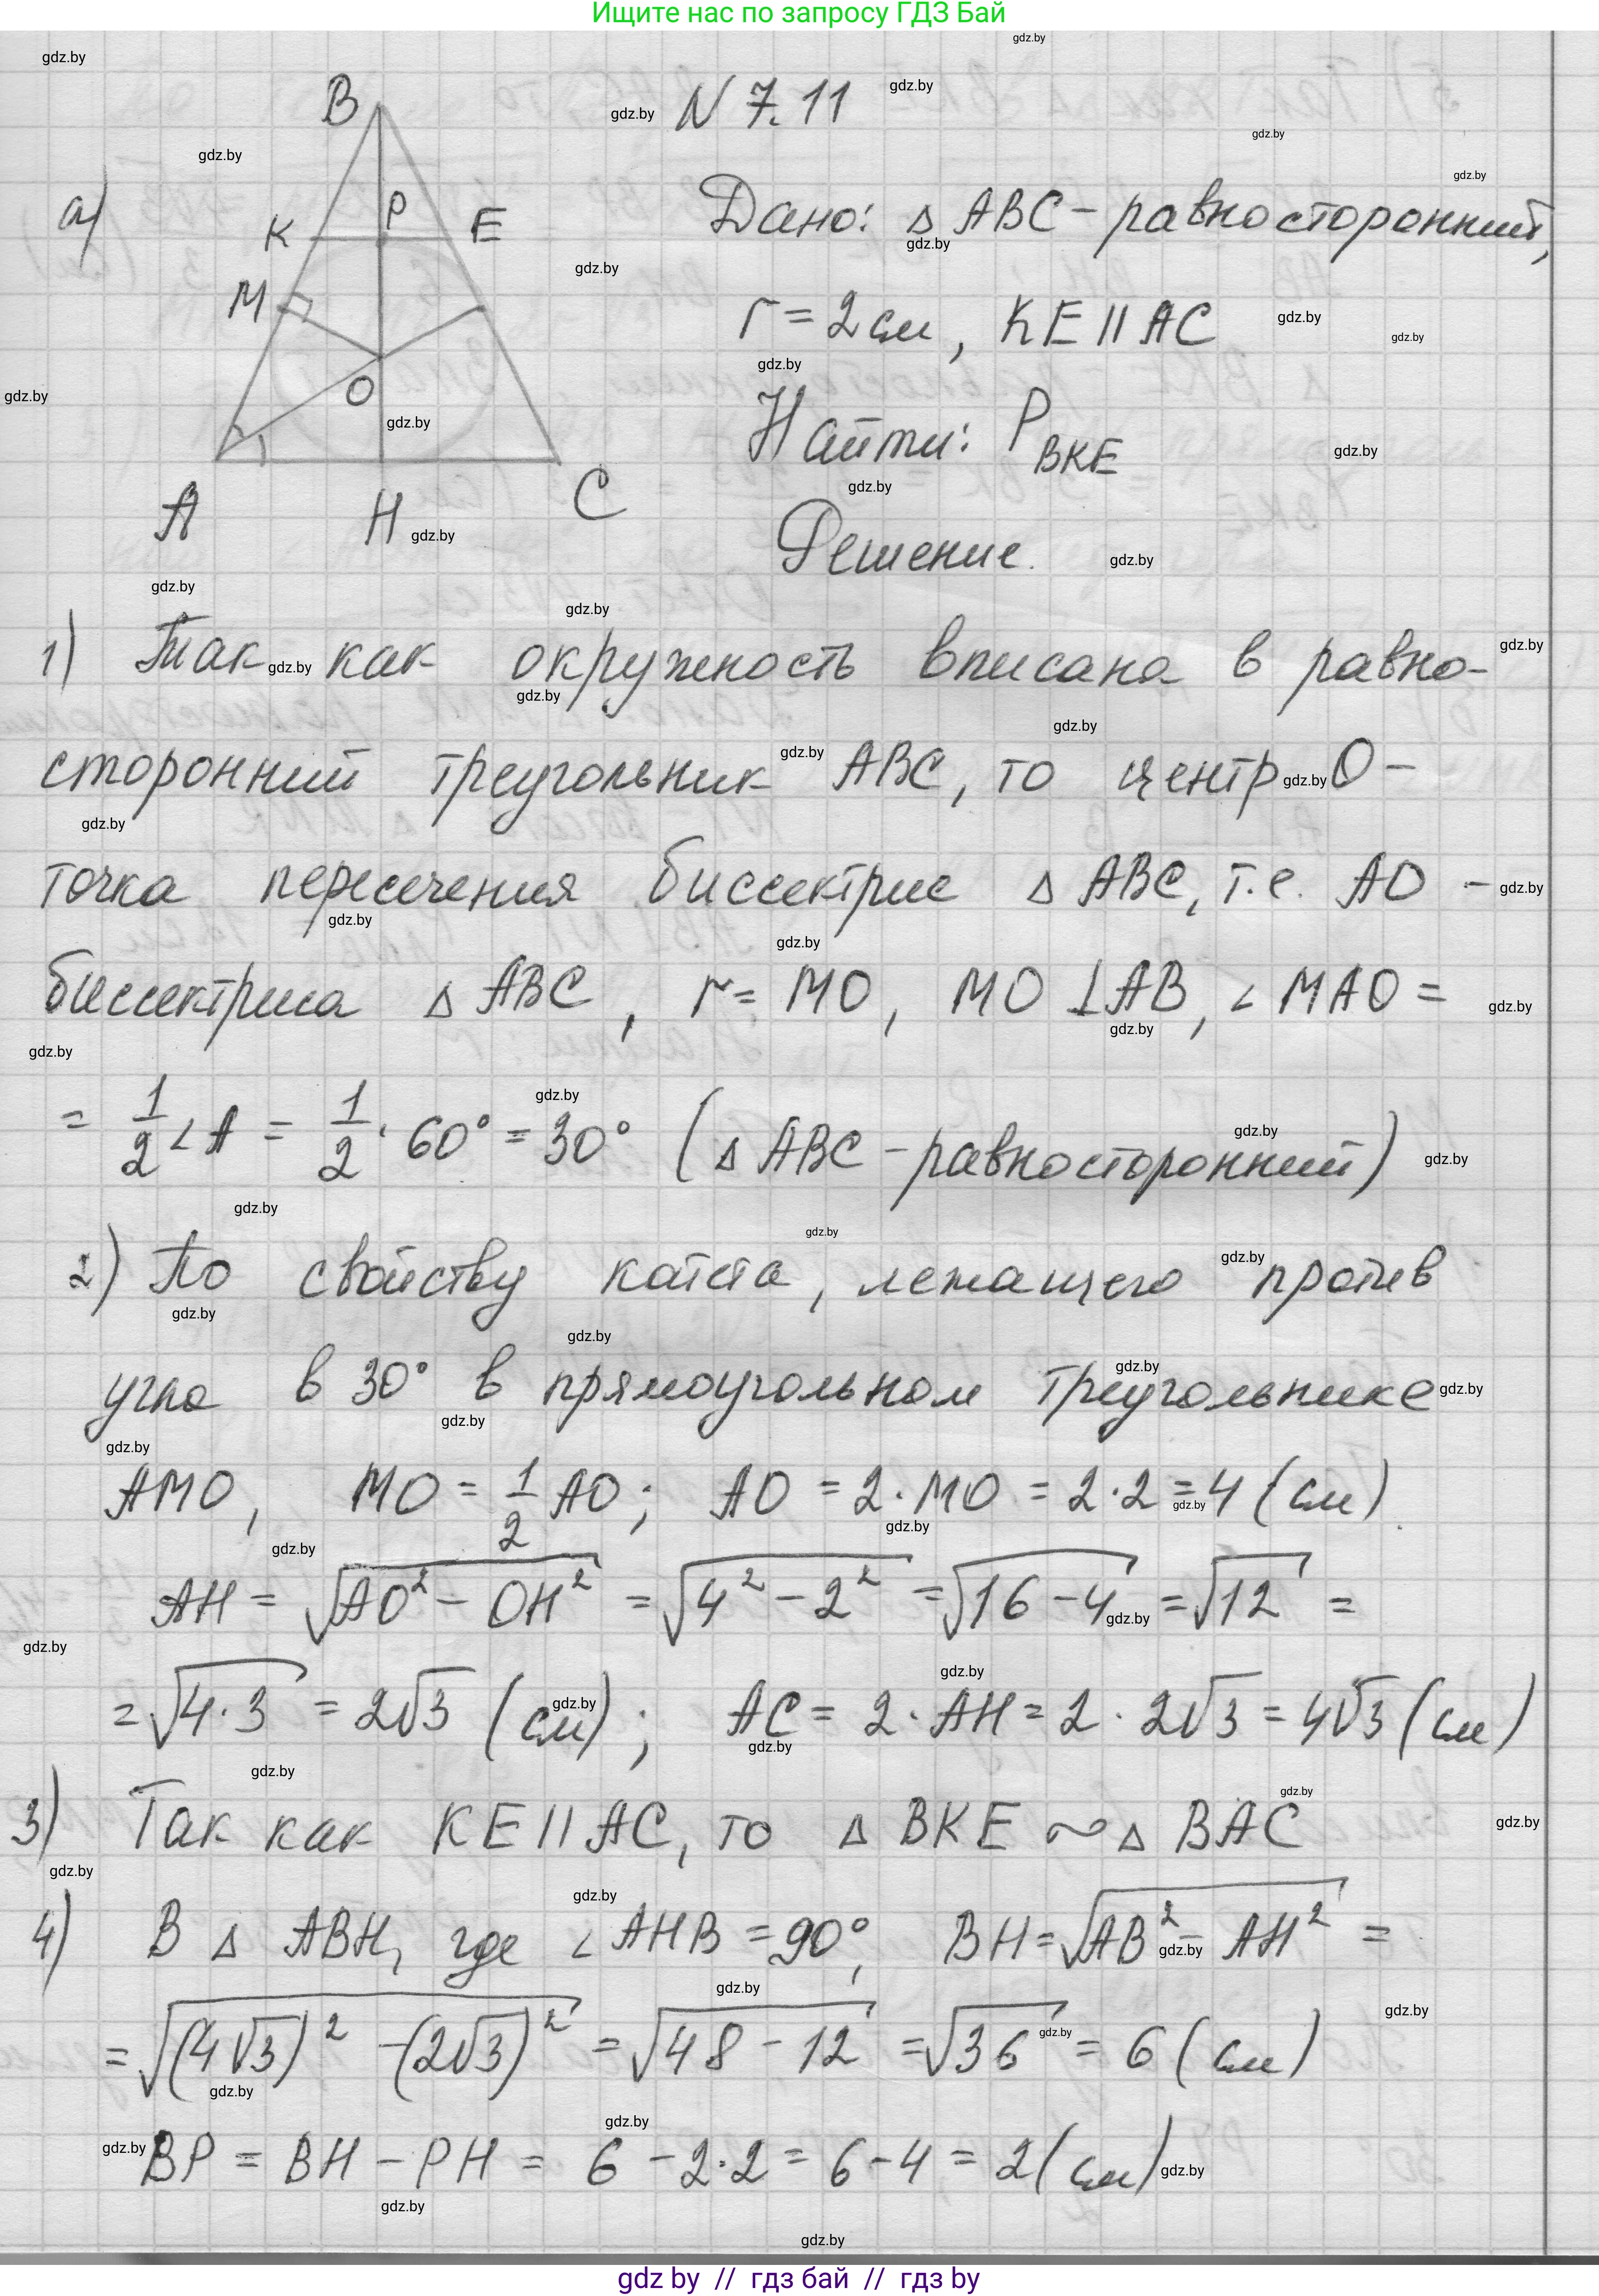 Ищите нас по запросу ГДЗ Бай
N 7.11
а)
B
K P E
M
O
A H C
Дано: Δ ABC - равносторонний,
r = 2 см, KE || AC
Найти: P BKE
Решение.
1) Так как окружность вписана в равно-
сторонний треугольник ABC, то центр O -
точка пересечения биссектрис Δ ABC, т.е. AO -
биссектриса Δ ABC, r = MO, MO ⊥ AB, ∠ MAO =
= 1/2 ∠ A = 1/2 · 60° = 30° (Δ ABC - равносторонний)
2) По свойству катета, лежащего против
угла в 30° в прямоугольном треугольнике
AMO, MO = 1/2 AO; AO = 2 · MO = 2 · 2 = 4 (см).
AH = √(AO² - OH²) = √(4² - 2²) = √(16 - 4) = √12 =
= √(4 · 3) = 2√3 (см); AC = 2 · AH = 2 · 2√3 = 4√3 (см)
3) Так как KE || AC, то Δ BKE ~ Δ BAC
4) В Δ ABH, где ∠ AHB = 90°, BH = √(AB² - AH²) =
= √((4√3)² - (2√3)²) = √(48 - 12) = √36 = 6 (см)
BP = BH - PH = 6 - 2·2 = 6 - 4 = 2 (см)
gdz by // гдз бай // гдз by